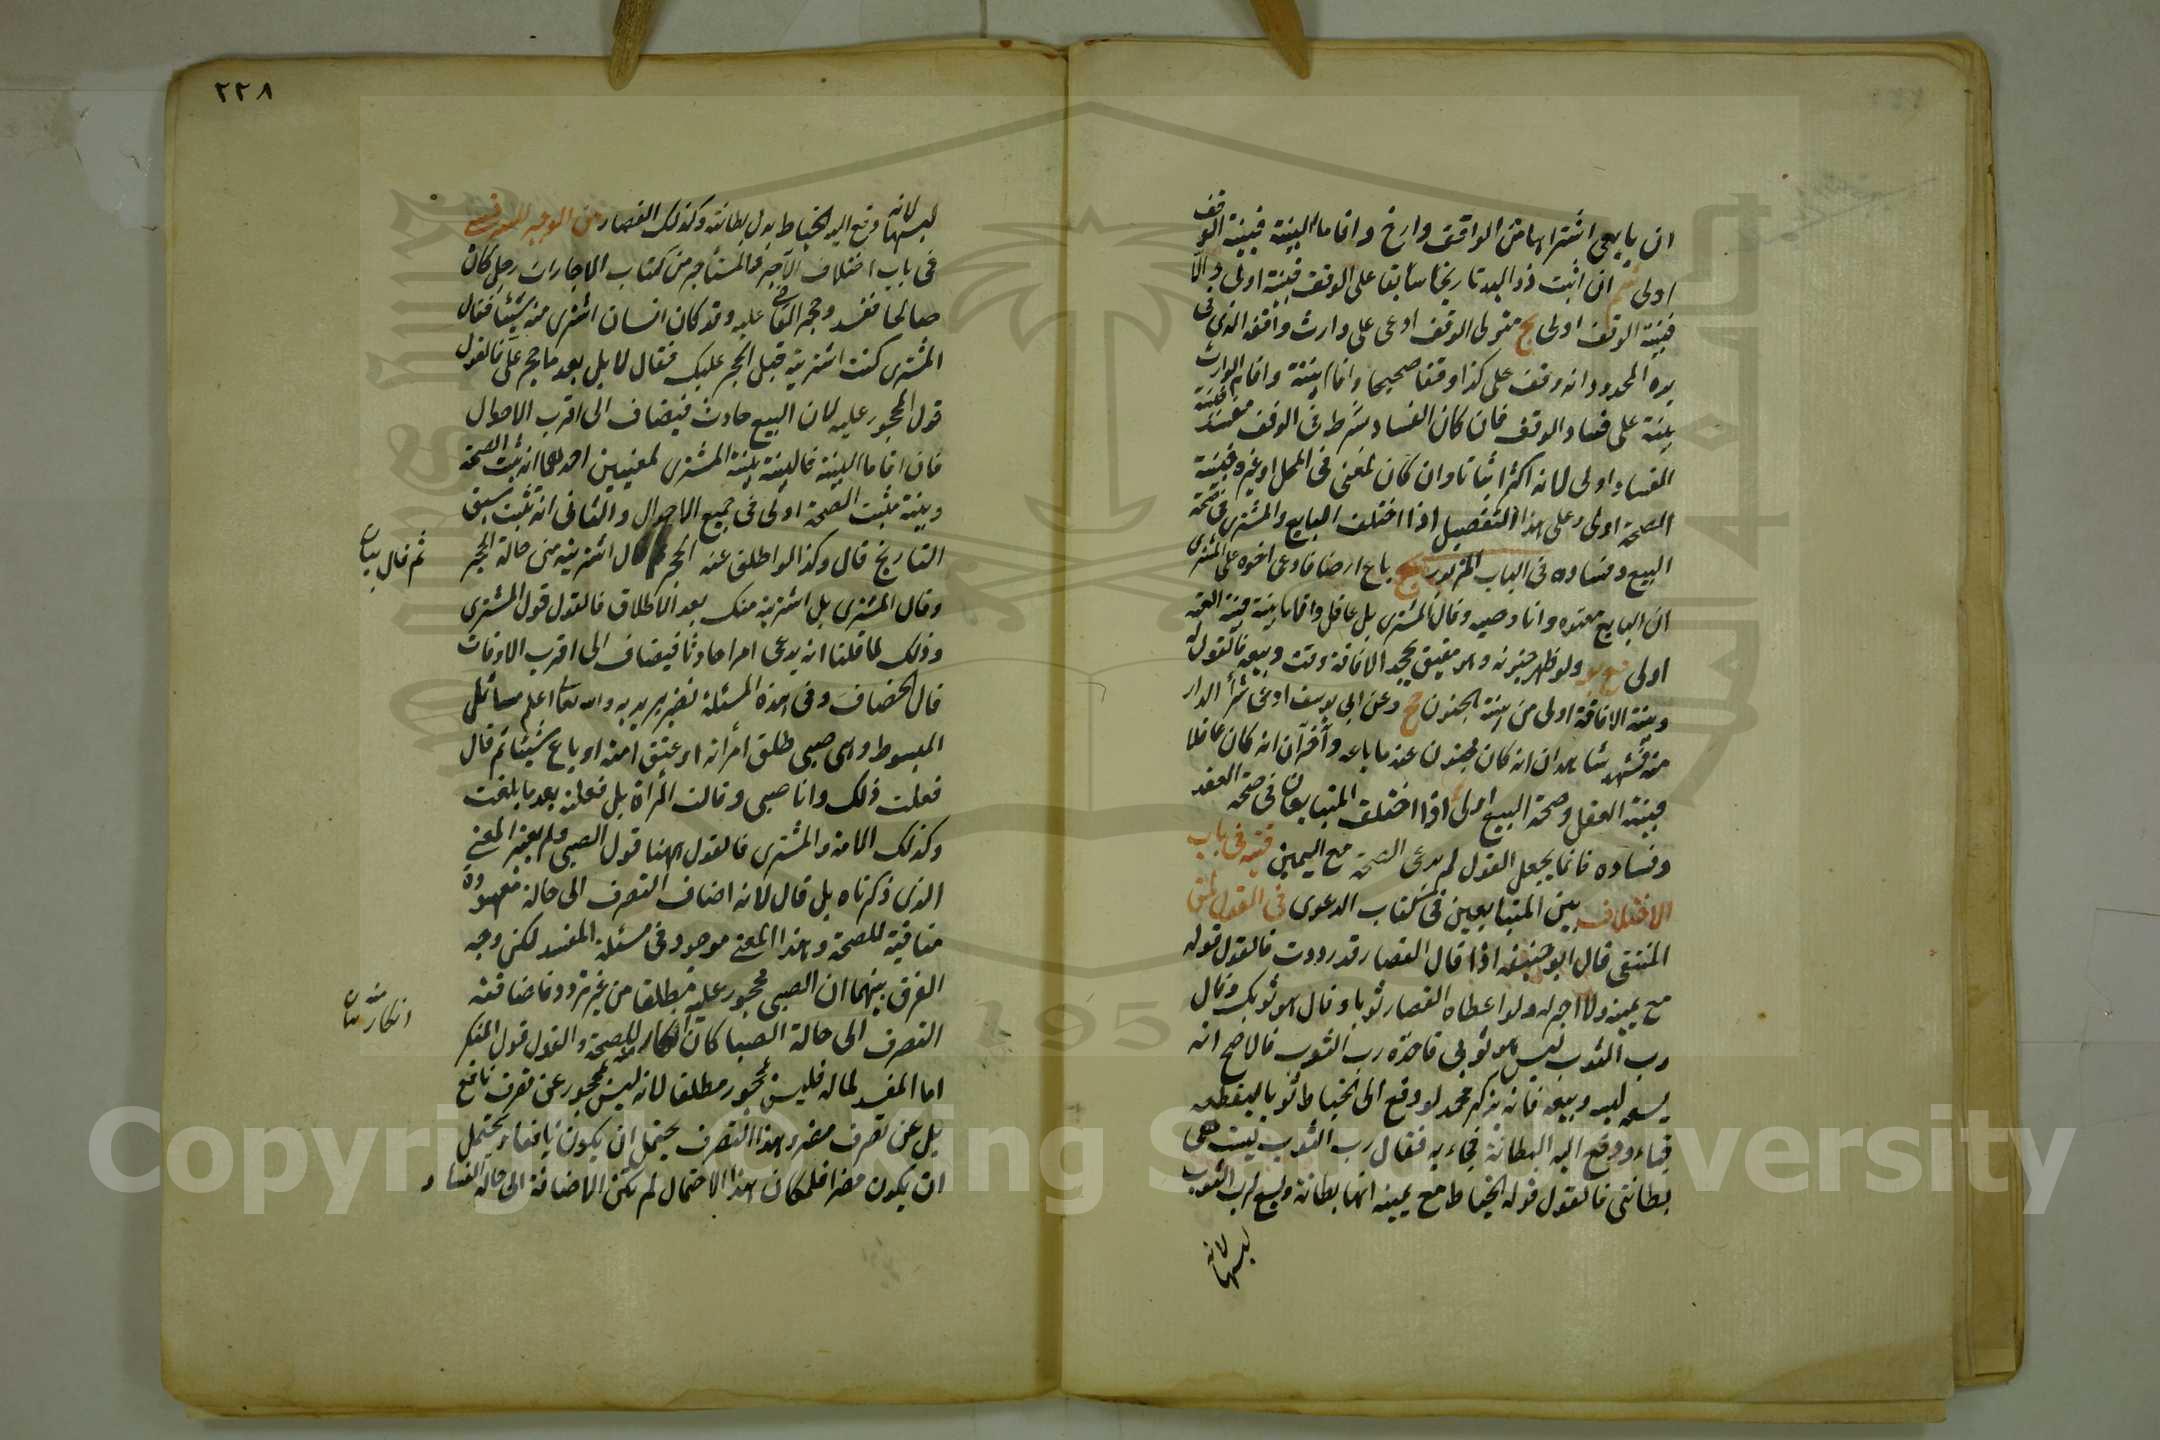 ان بايعي اشتراها من الواقف وارخ واقاما البينة فبينة الوقف
اولى ان اثبت ذو اليد تاريخا سابقا على الوقف فبينة اولى والا
فبينة الوقف اولى متولي الوقف ادعى على وارث واقفه الذي في
يده المحدود انه وقف على كذا وقفا صحيحا واقام بينة واقام الوارث
بينة على فساد الوقف فان كان الفساد بشرط في الوقف مفسد فبينة
الفساد اولى لانه اكثر اثباتا وان كان لمعنى في المحل او غيره فبينة
الصحة اولى وعلى هذا التفصيل اذا اختلف البايع والمشتري في صحة
البيع وفساده في الباب المزبور باع ارضا فادعى اخوه على المشتري
ان البايع معتوه وانا وصيه وقال المشتري بل عاقل واقاما بينة فبينة العته
اولى ولو ظهر جنونه وهو مفيق يجحد الافاقة وقت وبيعه فالقول له
وبينة الافاقة اولى من بينة الجنون وعن ابي يوسف ادعى شراء الدار
منه فشهد شاهدان انه كان مجنون عند ما باعه وآخران انه كان عاقلا
فبينة العقل وصحة البيع اولى اذا اختلف المتبايعان في صحة العقد
وفساده فانما يجعل القول لمدعي الصحة مع اليمين قنيه في باب
الاختلاف بين المتبايعين في كتاب الدعوى في القول لمن
المنتقى قال ابو حنيفه اذا قال القصار قد رددت فالقول قوله
مع يمينه ولا اجر له ولو اعطاه القصار ثوبا وقال هو ثوبك وقال
رب الثوب ليس هو ثوبي فاخذه رب الثوب فالاصح انه
يسعه لبسه وبيعه فانه ذكر محمد لو دفع الى الخياط ثوبا ليقطعه
قباء ودفع اليه البطانة فجاء به فقال رب الثوب ليست هي
بطانتي فالقول قوله الخياط مع يمينه انها بطانة ويسع لرب الثوب
لبسها لانه
٢٢٨
لبسها لانه دفع اليه الخياط بدل بطانته وكذلك القصار من الوجيز للسرخسي
في باب اختلاف الآجر والمستأجر من كتاب الاجارات رجل كان
صالحا ففسد وحجر القاضي عليه وقد كان انسان اشترى منه شيئا فقال
المشتري كنت اشتريته قبل الحجر عليك فقال لا بل بعد ما حجر علي فالقول
قول المحجور عليه لان البيع حادث فيضاف الى اقرب الاحوال
فان اقاما البينة فالبينة بينة المشتري لمعنيين احدهما انه يثبت الصحة
وبينة مثبت الصحة اولى في جميع الاحوال والثاني انه تثبت سبق
التاريخ قال وكذا لو اطلق عنه الحجر قال اشتريته مني حالة الحجر
ثم قال بيان
وقال المشتري بل اشتريته منك بعد الاطلاق فالقول قول المشتري
وذلك لما قلنا انه يدعي امرا حادثا فيضاف الى اقرب الاوقات
قال الخصاف وفي هذه المسئلة نضير يريد به والله تعالى اعلم مسائل
المبسوط وهي صبي طلق امرأته او عتق امته او باع شيئا ثم قال
فعلت ذلك وانا صبي وقالت المرأة بل فعلته بعد ما بلغت
وكذلك الامة والمشتري فالقول ههنا قول الصبي ولم يعتبر المعنى
الذي ذكرناه بل قال لانه اضاف التصرف الى حالة معهودة
منافية للصحة وهذا المعنى موجود في مسئلة المفسد لكن وجه
الفرق بينهما ان الصبي محجور عليه مطلقا من غير تردد فاضافته
التصرف الى حالة الصبا كان انكار للصحة والقول قول المنكر
انكار منه
اما المفسد لماله فليس بمحجور مطلقا لانه ليس بمحجور عن تصرف نافع
بل عن تصرف مضر وهذا التصرف يحتمل ان يكون نافعا ويحتمل
ان يكون مضرا فلمكان هذا الاحتمال لم تكن الاضافة الى حالة الفساد
Copyright © King Saud University
195